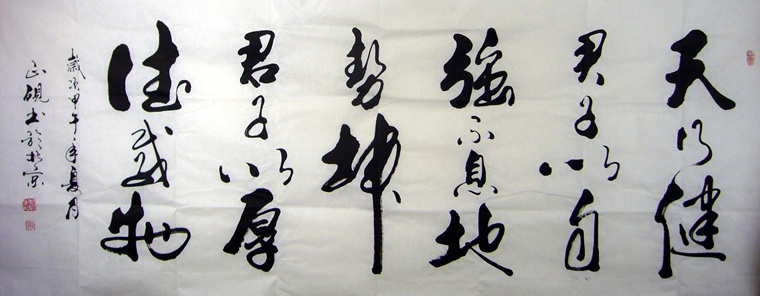 天行健
君子以自
強不息地
勢坤
君子以厚
德載物
歲次甲午年夏月
正硯书於北京